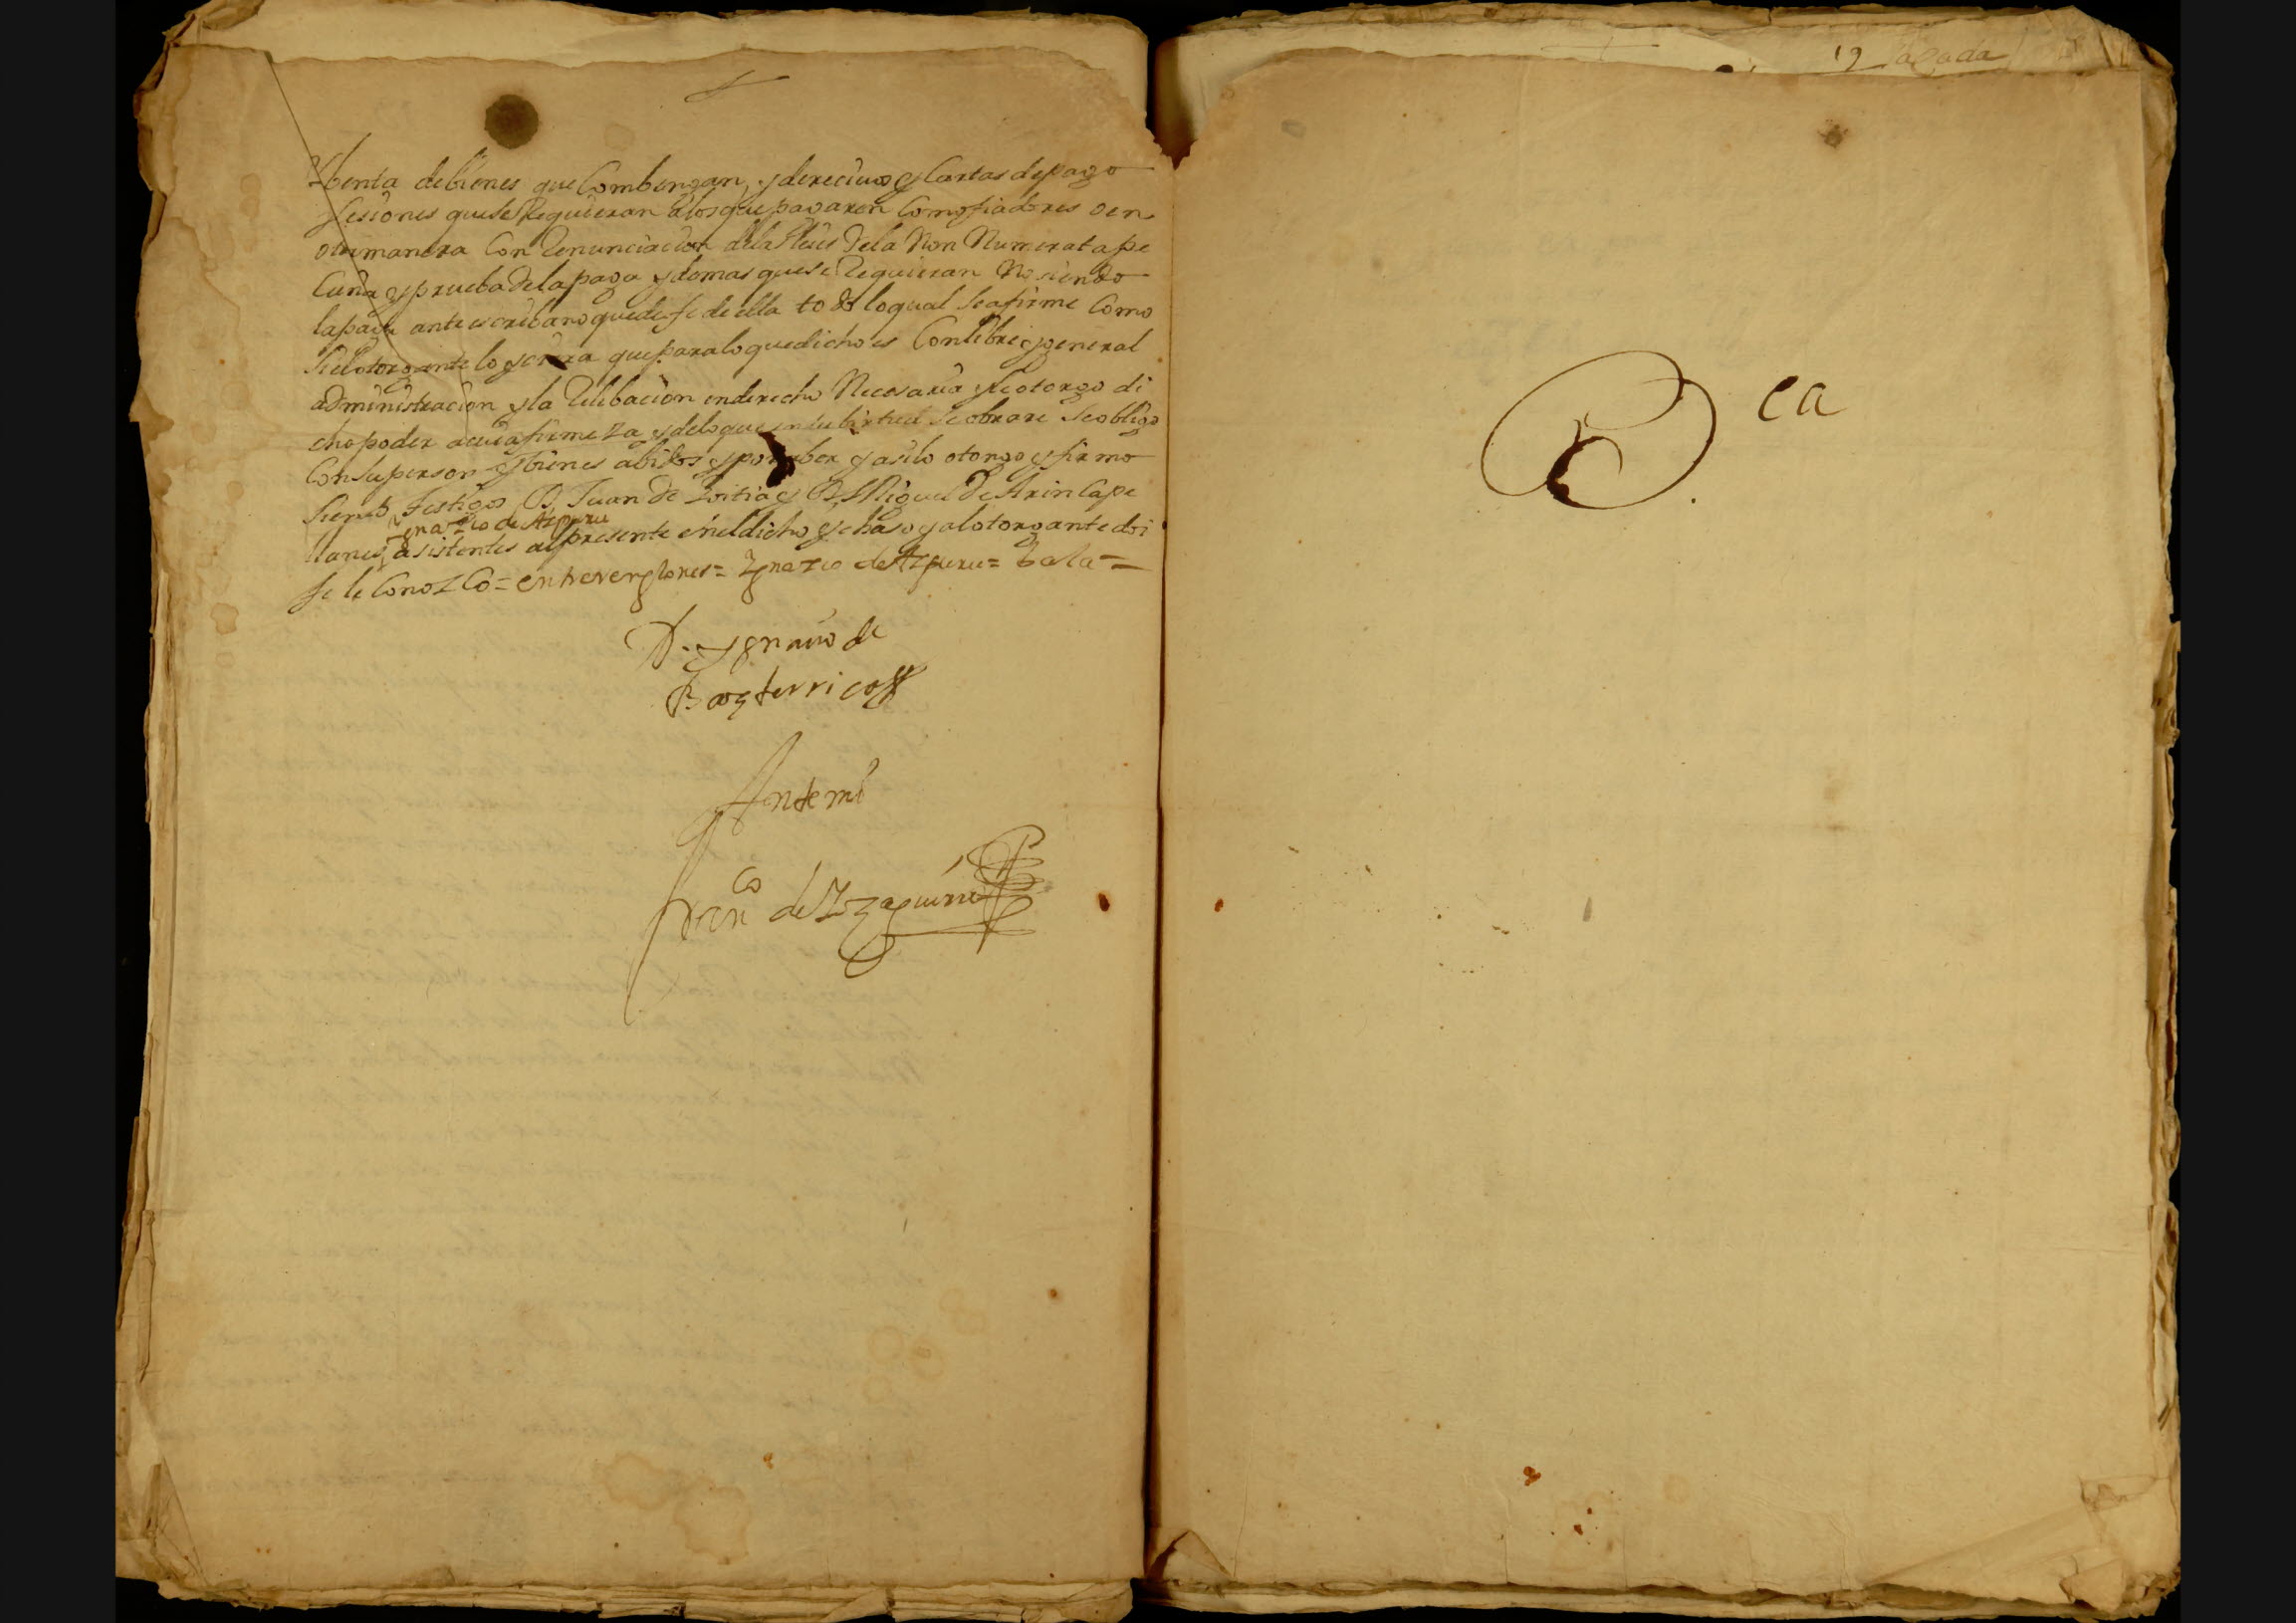 Venta de bienes que Combengan, y de recivos y Cartas de pago
sesiones que se Requieran a los que pagaren Como fiadores o en
otra manera Con Renunciacion de las leies de la Non Numerata pe
cunia y prueba de la paga y demas que se Requieran No siendo
la paga ante escribano que de fe de ella todo lo qual se a firme Como
si el otorgante lo yciera que para lo que dicho es Con libre y general
administracion y la Relebacion en derecho Necesaria y le otorgo di
cho poder a cuia firmeza y de lo que en su birtud se obrare se obligo
Con su persona y bienes abidos y por aber y asi lo otorgo y firmo
siendo testigos D. Juan de Zoitia y D. Miguel de Arin Cape
Ygnazio de Azpuru
llanes, asistentes al presente en el dicho y al otorgante doi
fe le Conozco = entrerenglones = Ygnazio de Azpuru = Bala =
D. Ygnacio de
Basterrica
Ante mi
Franco de Yzaguirre
ca